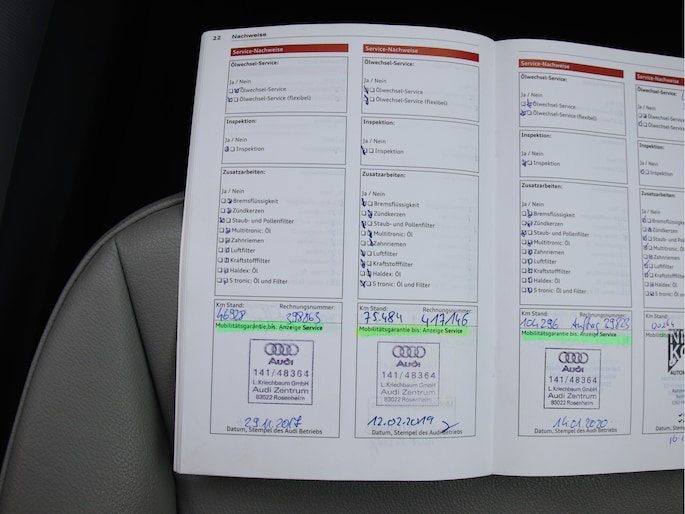 22 Nachweise
Service-Nachweise
Ölwechsel-Service:
Ja / Nein
Ölwechsel-Service
Ölwechsel-Service (flexibel)
Inspektion:
Ja / Nein
Inspektion
Zusatzarbeiten:
Ja / Nein
Bremsflüssigkeit
Zündkerzen
Staub- und Pollenfilter
Multitronic: Öl
Zahnriemen
Luftfilter
Kraftstofffilter
Haldex: Öl
S tronic: Öl und Filter
Km Stand: Rechnungsnummer:
46928 398163
Mobilitätsgarantie bis: Anzeige Service
Audi
141/48364
L.Kriechbaum GmbH
Audi Zentrum
83022 Rosenheim
29.11.2017
Datum, Stempel des Audi Betriebs
Service-Nachweise
Ölwechsel-Service:
Ja / Nein
Ölwechsel-Service
Ölwechsel-Service (flexibel)
Inspektion:
Ja / Nein
Inspektion
Zusatzarbeiten:
Ja / Nein
Bremsflüssigkeit
Zündkerzen
Staub- und Pollenfilter
Multitronic: Öl
Zahnriemen
Luftfilter
Kraftstofffilter
Haldex: Öl
S tronic: Öl und Filter
Km Stand: Rechnungsnummer:
75.484 417146
Mobilitätsgarantie bis: Anzeige Service
Audi
141/48364
L.Kriechbaum GmbH
Audi Zentrum
83022 Rosenheim
12.02.2019
Datum, Stempel des Audi Betriebs
Service-Nachweise
Ölwechsel-Service:
Ja / Nein
Ölwechsel-Service
Ölwechsel-Service (flexibel)
Inspektion:
Ja / Nein
Inspektion
Zusatzarbeiten:
Ja / Nein
Bremsflüssigkeit
Zündkerzen
Staub- und Pollenfilter
Multitronic: Öl
Zahnriemen
Luftfilter
Kraftstofffilter
Haldex: Öl
S tronic: Öl und Filter
Km Stand: Rechnungsnummer:
104296 29823
Mobilitätsgarantie bis: Anzeige Service
Audi
141/48364
L.Kriechbaum GmbH
Audi Zentrum
83022 Rosenheim
14.01.2020
Datum, Stempel des Audi Betriebs
Service-Nachweise
Ölwechsel-Service:
Ja / Nein
Ölwechsel-Service
Ölwechsel-Service
Inspektion:
Ja / Nein
Inspektion
Zusatzarbeiten:
Ja / Nein
Bremsflüssigkeit
Zündkerzen
Staub- und
Multitronic: Öl
Zahnriemen
Luftfilter
Kraftstofffilter
Haldex: Öl
S tronic: Öl
Km Stand: